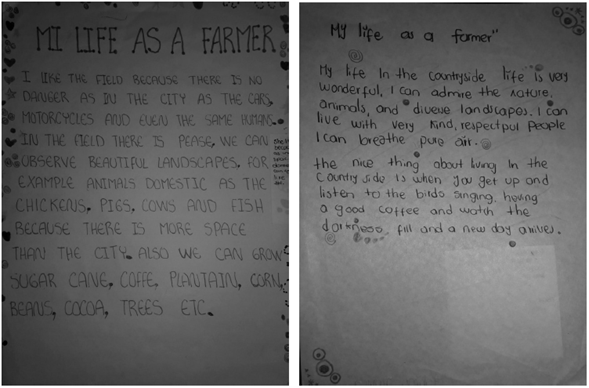 MI LIFE AS A FARMER
I LIKE THE FIELD BECAUSE THERE IS NO
DANGER AS IN THE CITY AS THE CARS,
MOTORCYCLES AND EVEN THE SAME HUMANS.
IN THE FIELD THERE IS PEASE, WE CAN
OBSERVE BEAUTIFUL LANDSCAPES, FOR
EXAMPLE ANIMALS DOMESTIC AS THE
CHICKENS, PIGS, COWS AND FISH
BECAUSE THERE IS MORE SPACE
THAN THE CITY. ALSO WE CAN GROW
SUGAR CANE, COFFE, PLANTAIN, CORN,
BEANS, COCOA, TREES ETC.
My life as a farmer"
My life In the countryside life is very
wonderful, I can admire the nature,
animals, and diveue landscapes. I can
live with very kind, respectful people
I can breathe pure air.
the nice thing about living In the
Country side is when you get up and
listen to the birds singing, having
a good coffee and watch the
darkness fill and a new day arrives.